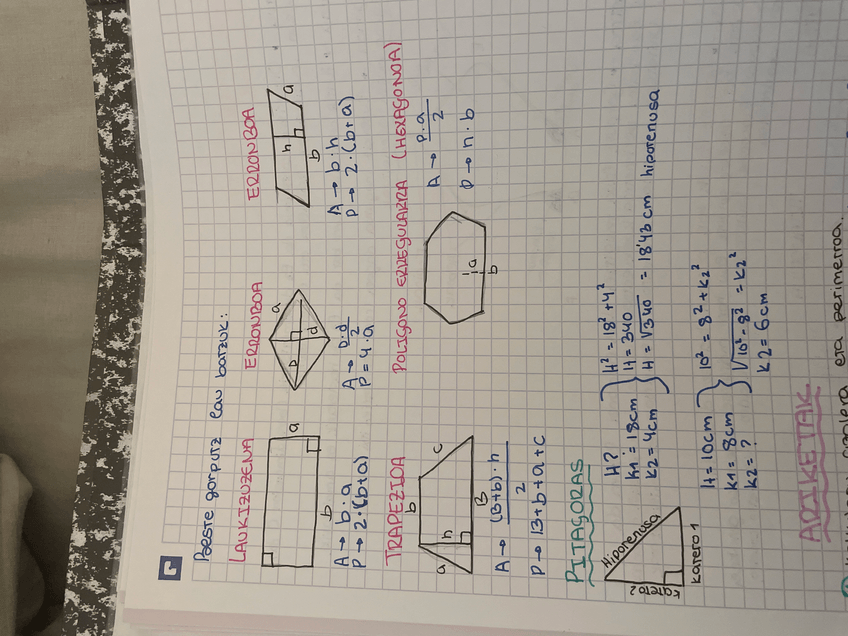 Beste gorputz lau batzuk:
LAUKIZUZENA
a
b
A → b · a
P → 2 · (b+a)
ERRONBOA
a
D
d
A → D·d
2
P = 4 · a
ERRONBOA
h
a
b
A → b · h
P → 2 · (b+a)
TRAPEZIOA
b
a
h
c
B
A → (B+b) · h
2
P → B+b+a+c
POLIGONO ERREGULARRA (HEXAGONOA)
a
b
A → p·a
2
P → n · b
PITAGORAS
Hipotenusa
Kateto 2
Kateto 1
H?
K1 = 18cm
K2 = 4cm
H² = 18² + 4²
H = 340
H = √340 = 18'43 cm hipotenusa
H = 10cm
K1 = 8cm
K2 = ?
10² = 8² + K2²
√10² - 8² = K2²
K2 = 6cm
ARIKETAK
azalera eta perimetroa.